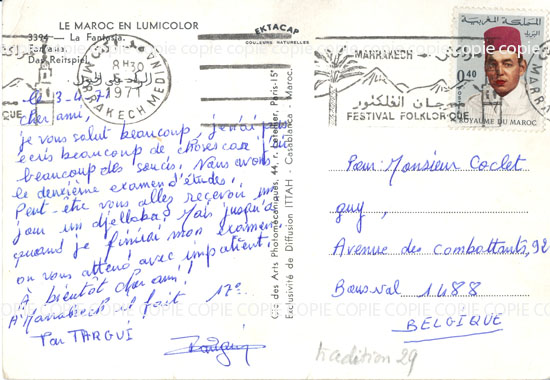 LE MAROC EN LUMICOLOR
3394 — La Fantasia.
Fantasia.
Das Reitspiel.
EKTACAP
COULEURS NATURELLES
MARRAKECH MEDINA
8H30
1971
MARRAKECH مراكش
مهرجان الفلكلور
FESTIVAL FOLKLORIQUE
المملكة المغربية
البريد
0,40
ROYAUME DU MAROC
le 3-4-71
Cher ami,
je vous salut beaucoup, je n'ai pu
écris beaucoup de choses car j'ai
beaucoup des soucis. Nous avons
le deuxième examen d'études.
Peut-être vous allez reçevoir un
jour un djellaba. Mais jusqu'à
quand je finirai mon examen
on vous attend avec impatient!
A bientôt cher ami!
A Marrakech il fait 17°..
Par TARGUI
Cie des Arts Photomécaniques, 44, r. Letellier, Paris-15°
Exclusivité de Diffusion ITTAH - Casablanca - Maroc.
Pour: Monsieur Coclet
guy,
Avenue des Combattants, 92
Bousval 1488
BELGIQUE
tradition 29
COPIE COPIE COPIE COPIE COPIE COPIE